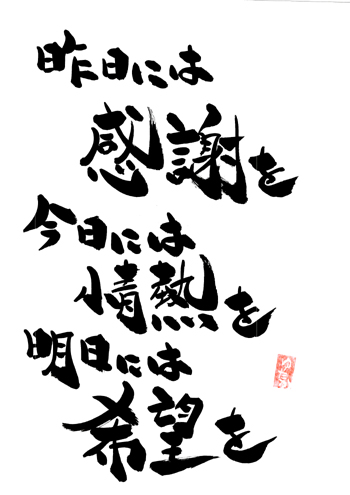 昨日には
感謝を
今日には
情熱を
明日には
希望を